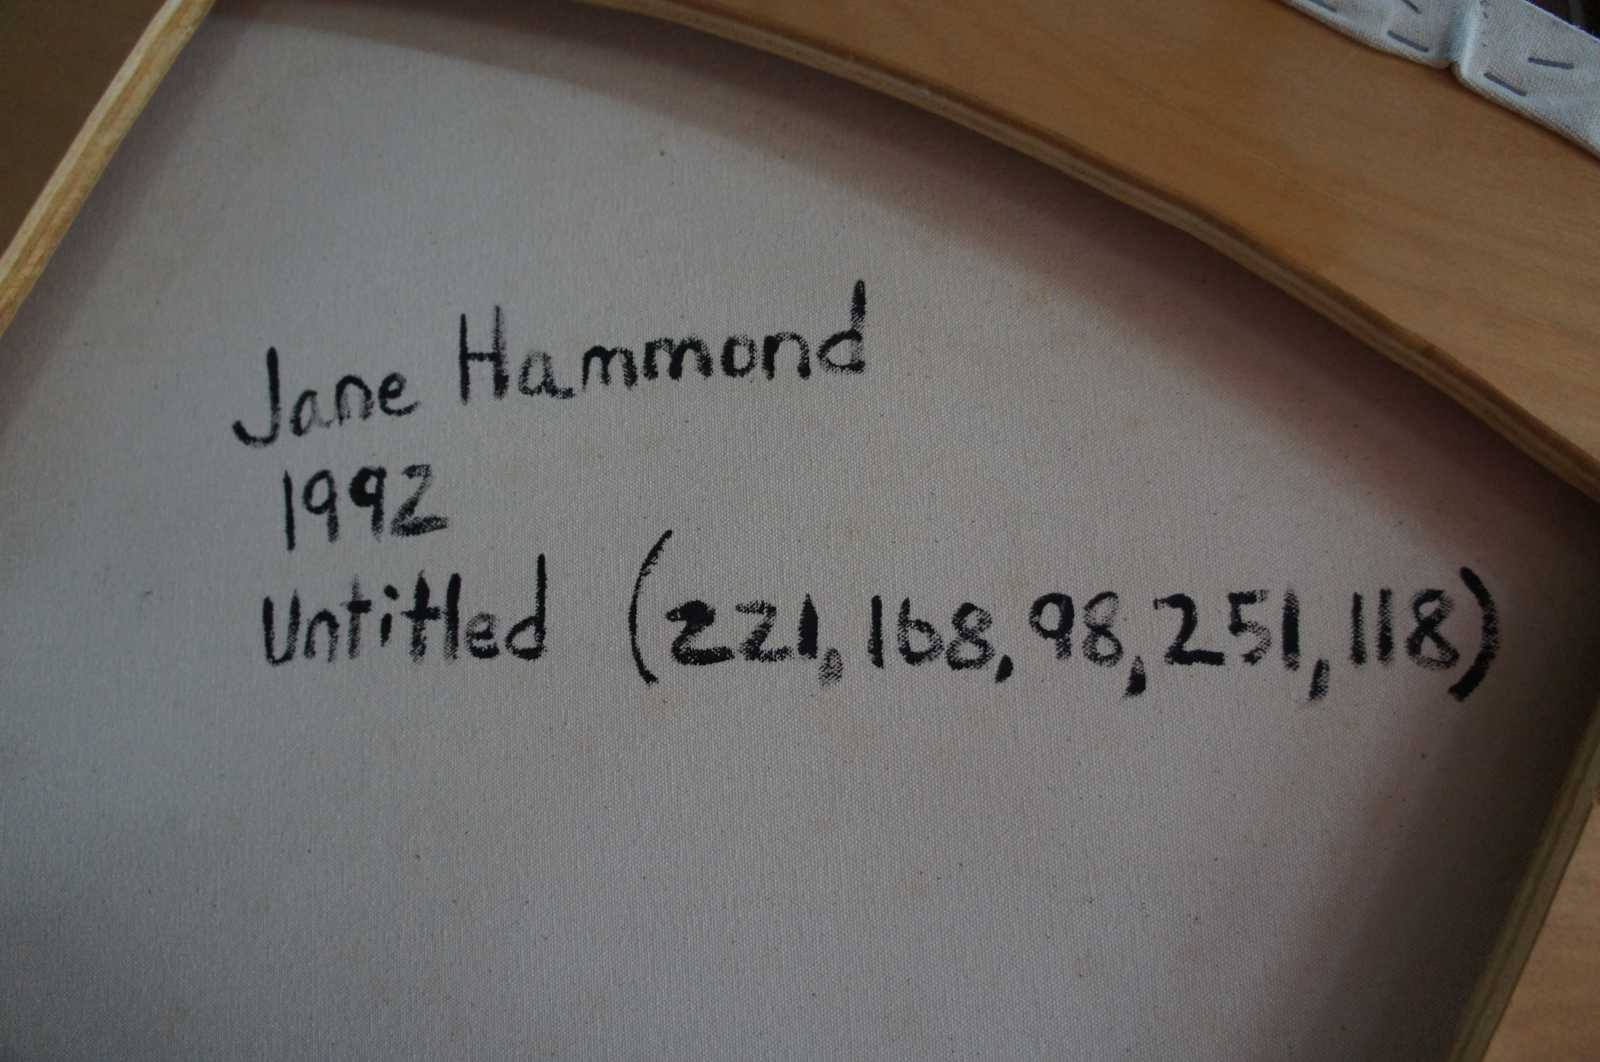 Jane Hammond
1992
Untitled (221, 168, 98, 251, 118)